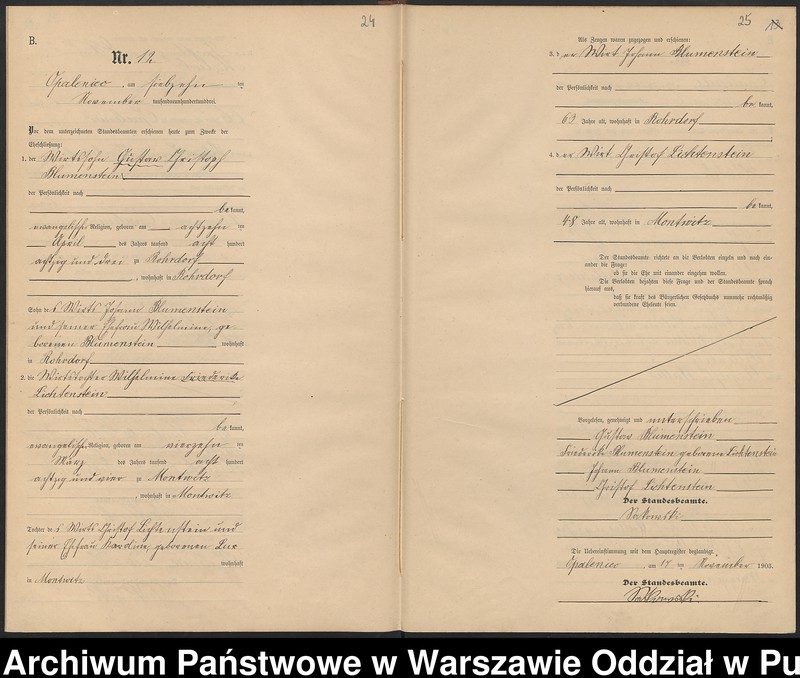 24
B.
Nr. 12
Opalenico, am siebzehn ten
November tausendneunhundertunddrei.
Vor dem unterzeichneten Standesbeamten erschienen heute zum Zwecke der
Eheschließung:
1. der Wirtssohn Gustav Christoph
Blumenstein
der Persönlichkeit nach
be kannt,
evangelischer Religion, geboren am achtzehn ten
April des Jahres tausend acht hundert
achtzig und drei zu Rohrdorf
, wohnhaft in Rohrdorf
Sohn des Wirts Johann Blumenstein
und seiner Ehefrau Wilhelmine, ge-
borenen Blumenstein wohnhaft
in Rohrdorf
2. die Wirtstochter Wilhelmine Friederike
Lichtenstein
der Persönlichkeit nach
be kannt,
evangelischer Religion, geboren am vierzehn ten
März des Jahres tausend acht hundert
achtzig und vier zu Montwitz
, wohnhaft in Montwitz
Tochter des Wirts Christof Lichtenstein und
seiner Ehefrau Karoline, geborenen Lux
wohnhaft
in Montwitz
25
Als Zeugen waren zugezogen und erschienen:
3. der Wirt Johann Blumenstein
der Persönlichkeit nach
be kannt,
63 Jahre alt, wohnhaft in Rohrdorf
4. der Wirt Christof Lichtenstein
der Persönlichkeit nach
be kannt,
48 Jahre alt, wohnhaft in Montwitz
Der Standesbeamte richtete an die Verlobten einzeln und nach ein-
ander die Frage:
ob sie die Ehe mit einander eingehen wollen.
Die Verlobten bejahten diese Frage und der Standesbeamte sprach
hierauf aus,
daß sie kraft des Bürgerlichen Gesetzbuchs nunmehr rechtmäßig
verbundene Eheleute seien.
Vorgelesen, genehmigt und unterschrieben
Gustav Blumenstein
Friederike Blumenstein geborene Lichtenstein
Johann Blumenstein
Christof Lichtenstein
Der Standesbeamte.
Die Uebereinstimmung mit dem Hauptregister beglaubigt.
Opalenico, am 17 ten November 1903.
Der Standesbeamte.
Archiwum Państwowe w Warszawie Oddział w Pu